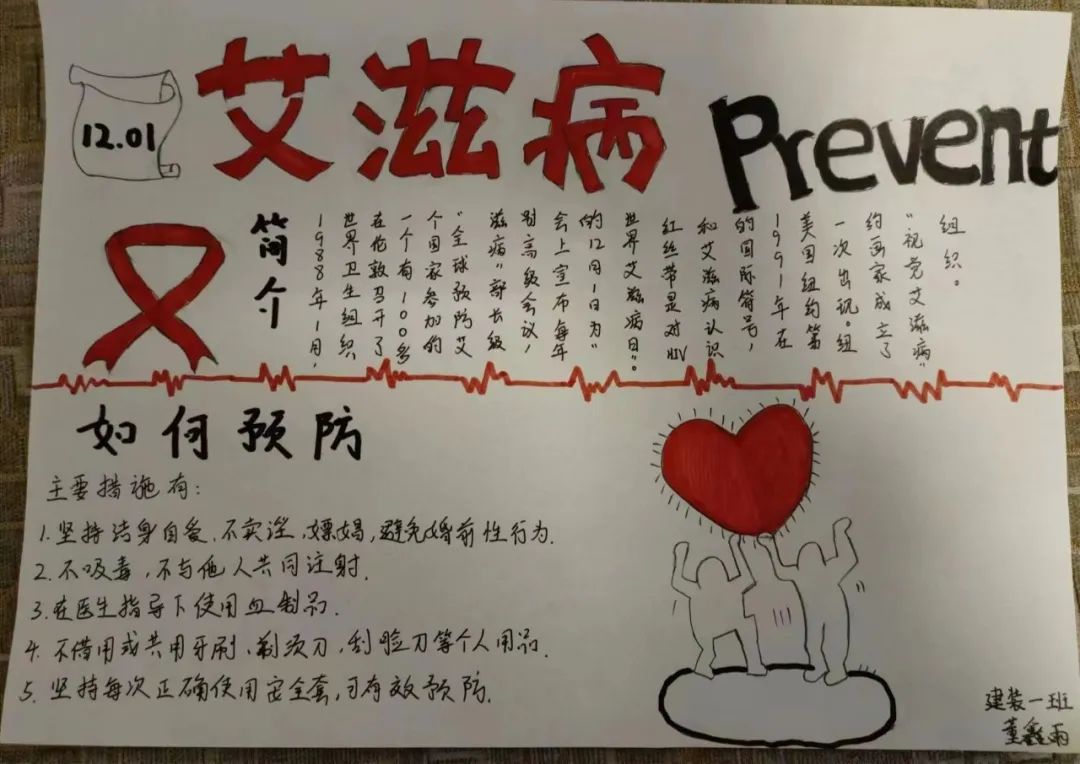 12.01
艾滋病 Prevent
简介
1988年1月,
世界卫生组织
在伦敦召开了
一个有100多
个国家参加的
“全球预防艾
滋病”部长级
别高级会议,
会上宣布每年
的12月1日为“
世界艾滋病日”。
红丝带是对HIV
和艾滋病认识
的国际符号,
1991年在
美国纽约第
一次出现。纽
约画家成立了
“视觉艾滋病”
组织。
如何预防
主要措施有:
1.坚持洁身自爱、不卖淫,嫖娼,避免婚前性行为.
2.不吸毒,不与他人共同注射.
3.在医生指导下使用血制品.
4.不借用或共用牙刷、剃须刀,刮脸刀等个人用品.
5.坚持每次正确使用安全套,可有效预防.
建装一班
董鑫雨